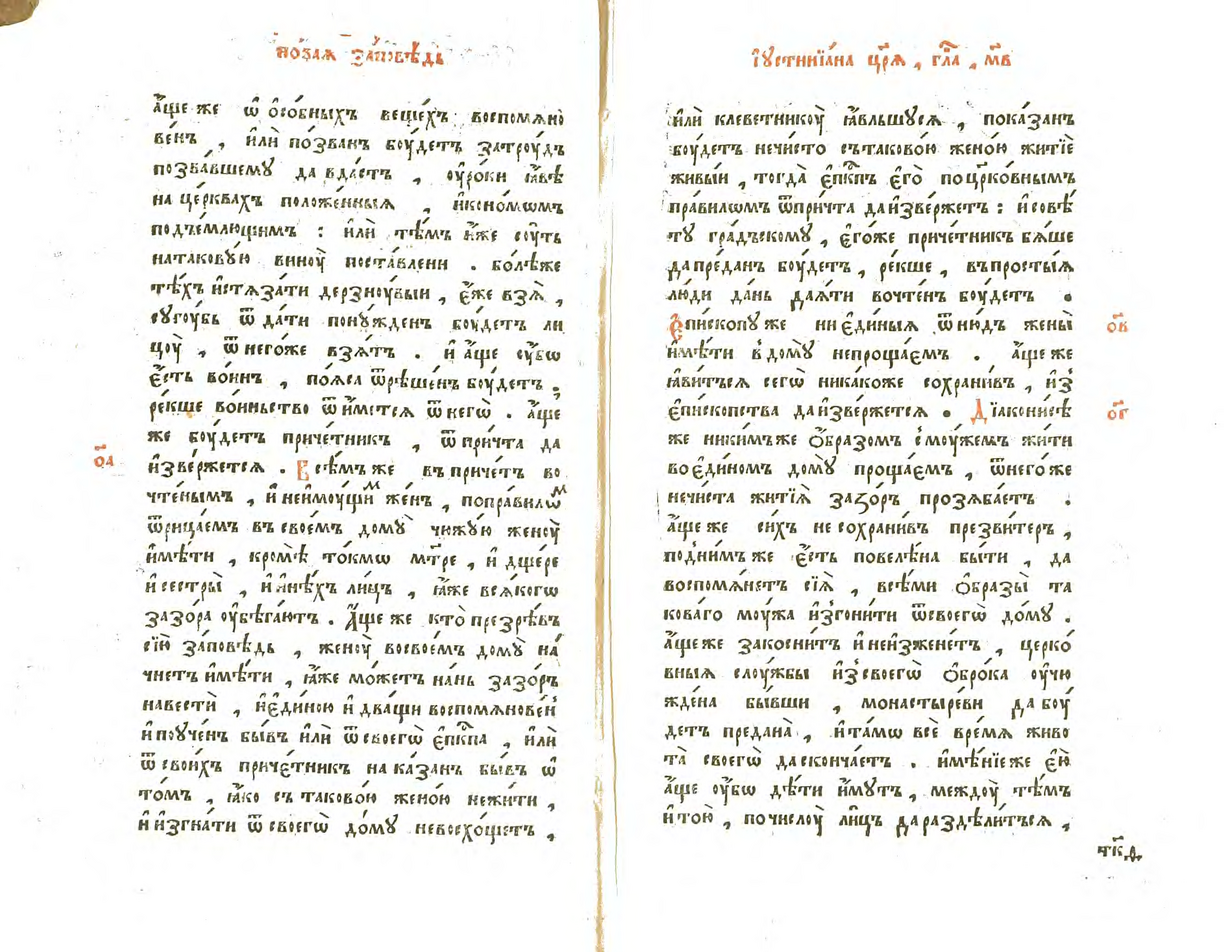 но́вая за́повѣдь
а҆́ще же ѡ҆ ѻ҆со́бныхъ веще́хъ воспомѧно
ве́нъ , и҆лѝ по́званъ бꙋ́детъ затрꙋ́дъ
позва́вшемꙋ да вда́стъ , ᲂу҆ро́ки ꙗ҆́вѣ
на це́рквахъ положе́нныѧ , и҆коно́мѡмъ
подъе́млющимъ : и҆лѝ тѣ́мъ и҆́же сꙋ́ть
натакову́ю винꙋ̀ поста́влени . бо́лѣже
тѣ́хъ и҆стѧза́ти дерзнꙋ́выи , є҆́же взѧ̀ ,
сꙋгꙋ́бь ѿда́ти пону́жденъ бꙋ́детъ ли
цꙋ̀ , ѿнего́же взѧ́тъ . и҆ а҆́ще ᲂу҆́бѡ
є҆́сть во́инъ , по́ѧса ѿрѣше́нъ бꙋ́детъ ,
ре́кше во́иньство ѿи́метсѧ ѿнегѡ̀ . а҆́ще
же бꙋ́детъ приче́тникъ , ѿпри́чта да
и҆зве́ржетсѧ . Всѣ́мъ же въпри́четъ во
ѻ҃а
чте́нымъ , и҆ неимꙋ́щимъ же́нъ , поправилѡ́м
ѿрица́емъ въ свое́мъ домꙋ̀ чюжу́ю женꙋ̀
и҆мѣ́ти , кромѣ̀ то́кмѡ мт҃ре , и҆ дще́ре
и҆ сестры̀ , и҆ и҆нѣ́хъ ли́цъ , ꙗ҆́же всѧ́когѡ
зазо́ра ᲂу҆бѣга́ютъ . А҆́ще же кто̀ презрѣ́въ
сїю̀ за́повѣдь , женꙋ̀ восвое́мъ домꙋ̀ на́
чнетъ и҆мѣ́ти , ꙗ҆́же мо́жетъ на́нь зазо́ръ
навестѝ , и҆ є҆ди́ною и҆ два́щи воспомѧнове́н
и҆ пꙋче́нъ бы́въ и҆лѝ ѿсвоегѡ̀ є҆пⷭ҇кпа , и҆лѝ
ѿсвои́хъ приче́тникъ на ка́занъ бы́въ ѡ҆
то́мъ , ꙗ҆́ко съ таково́ю жено́ю нежи́ти ,
и҆ и҆згна́ти ѿсвоегѡ̀ до́мꙋ невосхо́щетъ ,
і҆ꙋстинїа́на цр҃ѧ̀ , гл҃а , м҃в
и҆лѝ клеветникꙋ̀ ꙗ҆́вльшꙋсѧ , пока́занъ
бꙋ́детъ нечи́сто сътаково́ю жено́ю житїѐ
живы́и , тогда̀ є҆пⷭ҇кпъ є҆гѡ̀ поцр҃ко́внымъ
пра́вилѡмъ ѿпри́чта даи҆зве́ржетъ : и҆ совѣ́
тꙋ гра́дъскомꙋ , є҆гѡ́же приче́тникъ бѧ́ше
дапре́данъ бꙋ́детъ , ре́кше , въпросты́ѧ
лю́ди да́нь даѧ́ти вочте́нъ бꙋ́детъ .
Є҆пи́скопꙋ же ни є҆ди́ныѧ ѿню́дъ жены̀
ѻ҃в
и҆мѣ́ти в домꙋ̀ непроща́емъ . а҆́ще же
ꙗ҆ви́тьсѧ сегѡ̀ ника́коже сохрани́въ , и҆з
є҆пи́скопства даи҆зве́ржетсѧ . Дїакони́сѣ
ѻ҃г
же ники́мъже ѻ҆́бразомъ с мꙋ́жемъ жи́ти
во є҆ди́номъ домꙋ̀ проща́емъ , ѿнего́же
нечи́ста житїѧ̀ зазо́ръ прозѧба́етъ .
а҆́ще же си́хъ не сохрани́въ презви́теръ ,
под ни́мъ же є҆́сть повеле́на бы́ти , да
воспомѧ́нетъ сїѧ̀ , всѣ́ми ѻ҆́бразы та
кова́го мꙋ́жа и҆згони́ти ѿсвоегѡ̀ до́мꙋ .
а҆́ще же закосни́тъ и҆ неи҆зжене́тъ , церко́
вныѧ слꙋ́жбы и҆ своегѡ̀ ѻ҆бро́ка ᲂу҆чю
жде́на бы́вши , монастыре́ви да бꙋ́
детъ предана̀ , и҆ та́мѡ всѐ вре́мѧ живо
та̀ своегѡ̀ дасконча́етъ . и҆мѣ́нїеже є҆ю̀
а҆́ще ᲂу҆́бѡ дѣ́ти и҆́мꙋтъ , междꙋ̀ тѣ́мъ
и҆ то́ю , почислꙋ̀ ли́цъ дараздѣли́тьсѧ ,
тк҃д